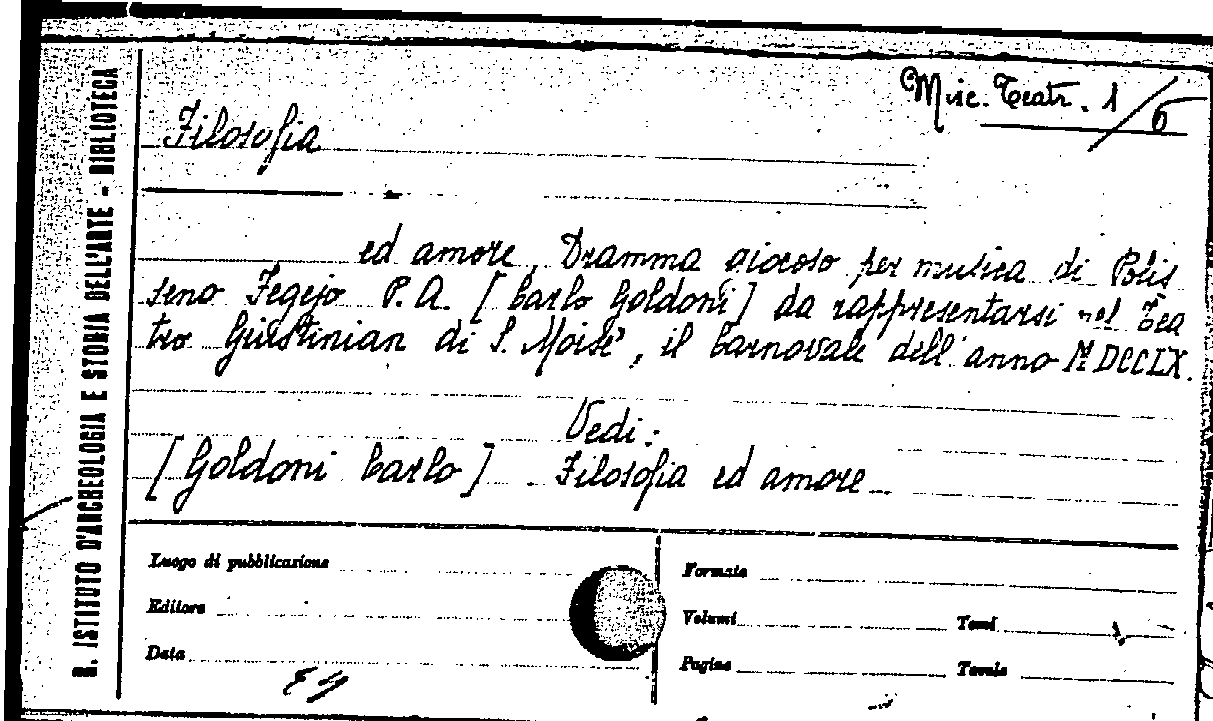 Misc. Teatr. 1/6
Filosofia
ed amore, Dramma giocoso per musica di Polis
seno Fegejo P. A. [Carlo Goldoni] da rappresentarsi nel Tea
tro Giustinian di S. Moisè, il Carnovale dell'anno MDCCLX.
Vedi:
[Goldoni Carlo]. Filosofia ed amore
R. ISTITUTO D'ARCHEOLOGIA E STORIA DELL'ARTE - BIBLIOTECA
Luogo di pubblicazione
Formato
Editore
Volumi
Tomi
Data
Pagine
Tavole